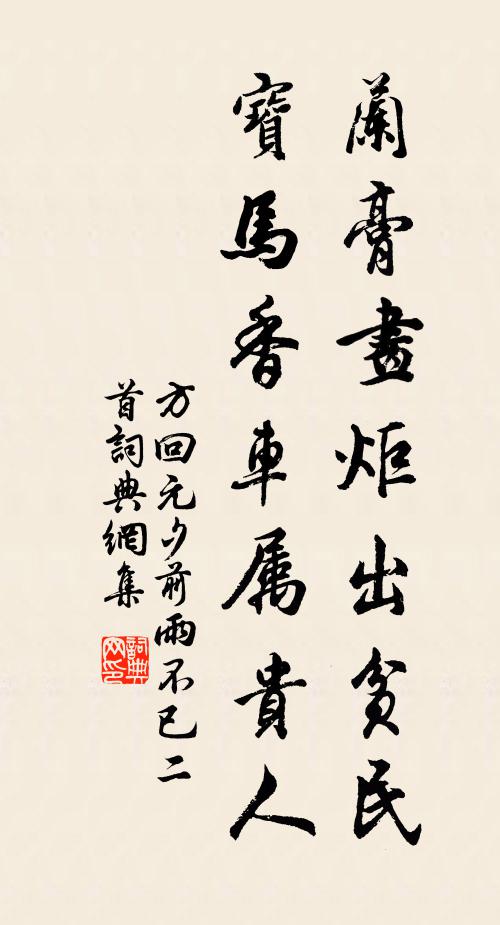 蘭膏畫炬出貧民
寶馬香車属貴人
方回元夕前雨不已二
首詞典網集
詞典網印